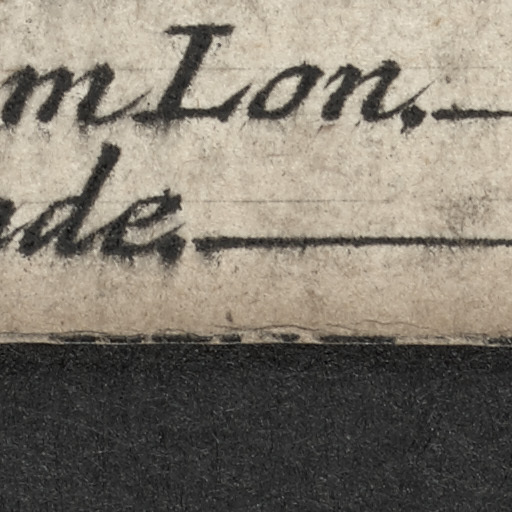 m Lon.
ade.